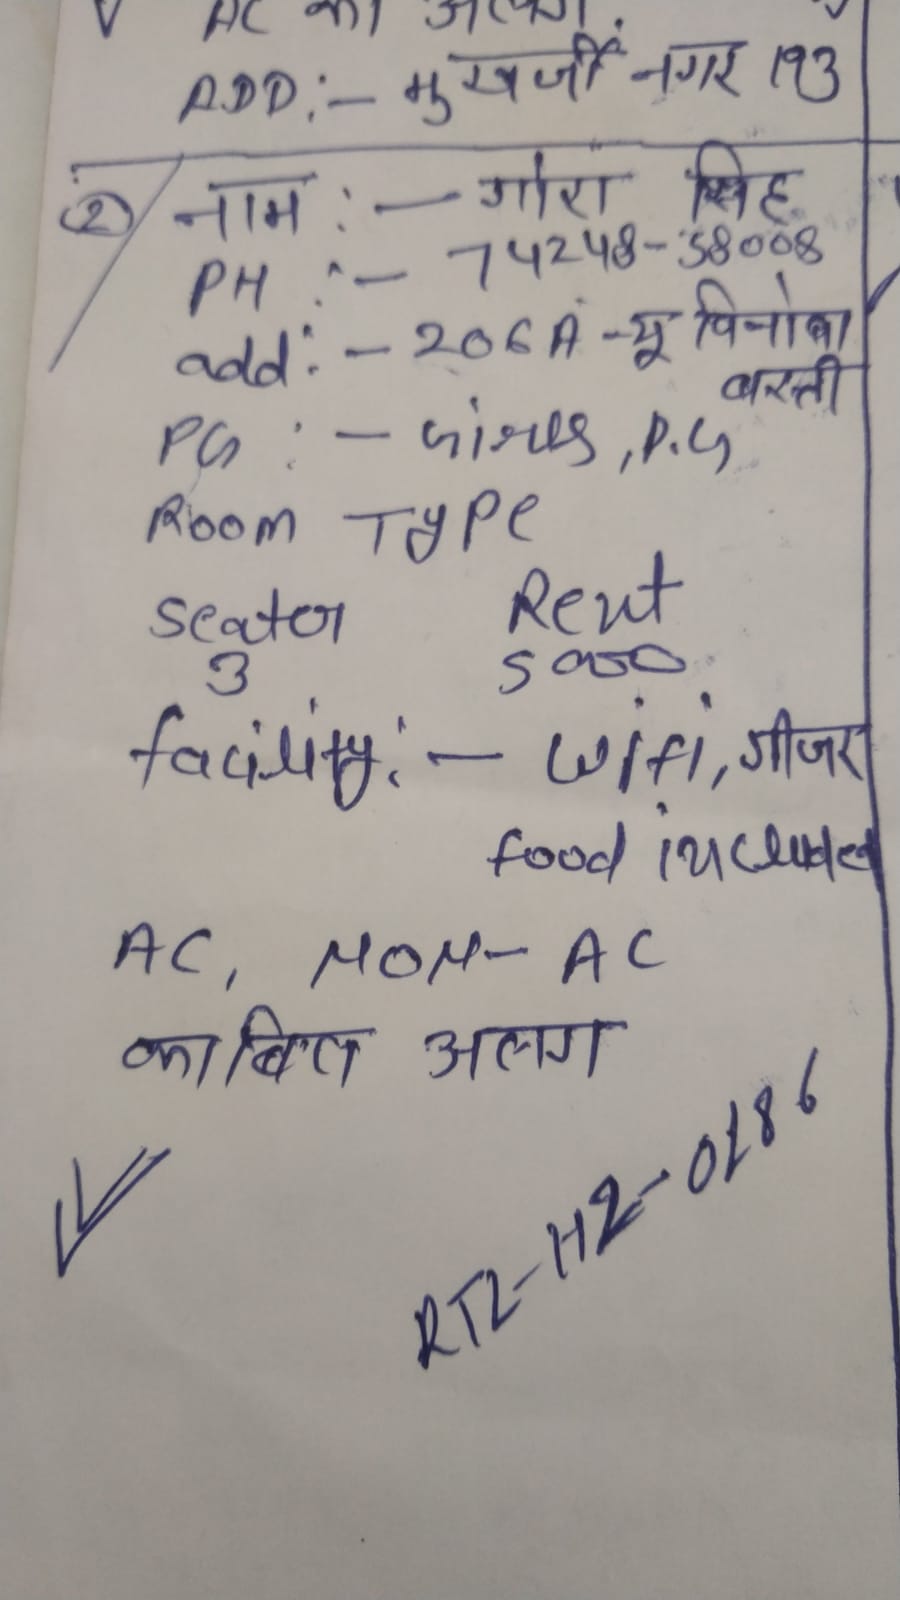 AC का अलग.
ADD:- मुखर्जी नगर 193
② नाम :- गोरा सिंह
PH :- 74248-38008
add:- 206A -यू विनोबा
बस्ती
PG :- गर्ल्स, P.G
Room Type
Seator Rent
3 5000
facility:- wifi, गीजर
food included
AC, NON- AC
का बिल अलग
RTL-H2-0186